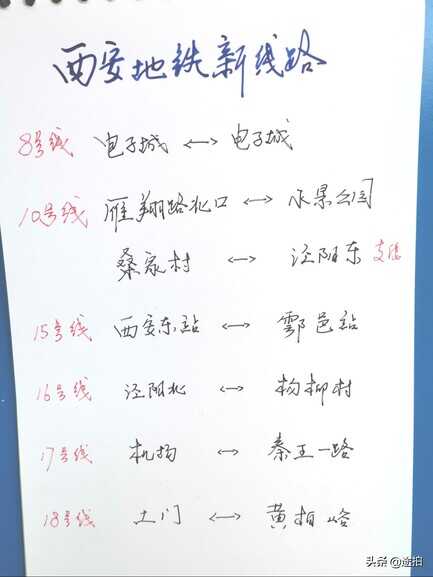 西安地铁新线路
8号线 电子城 ↔ 电子城
10号线 雁翔路北口 ↔ 水景公园
桑家村 ↔ 泾阳东 支线
15号线 西安东站 ↔ 鄠邑站
16号线 泾阳北 ↔ 杨柳村
17号线 机场 ↔ 秦王一路
18号线 土门 ↔ 黄柏峪
头条 @逾拍